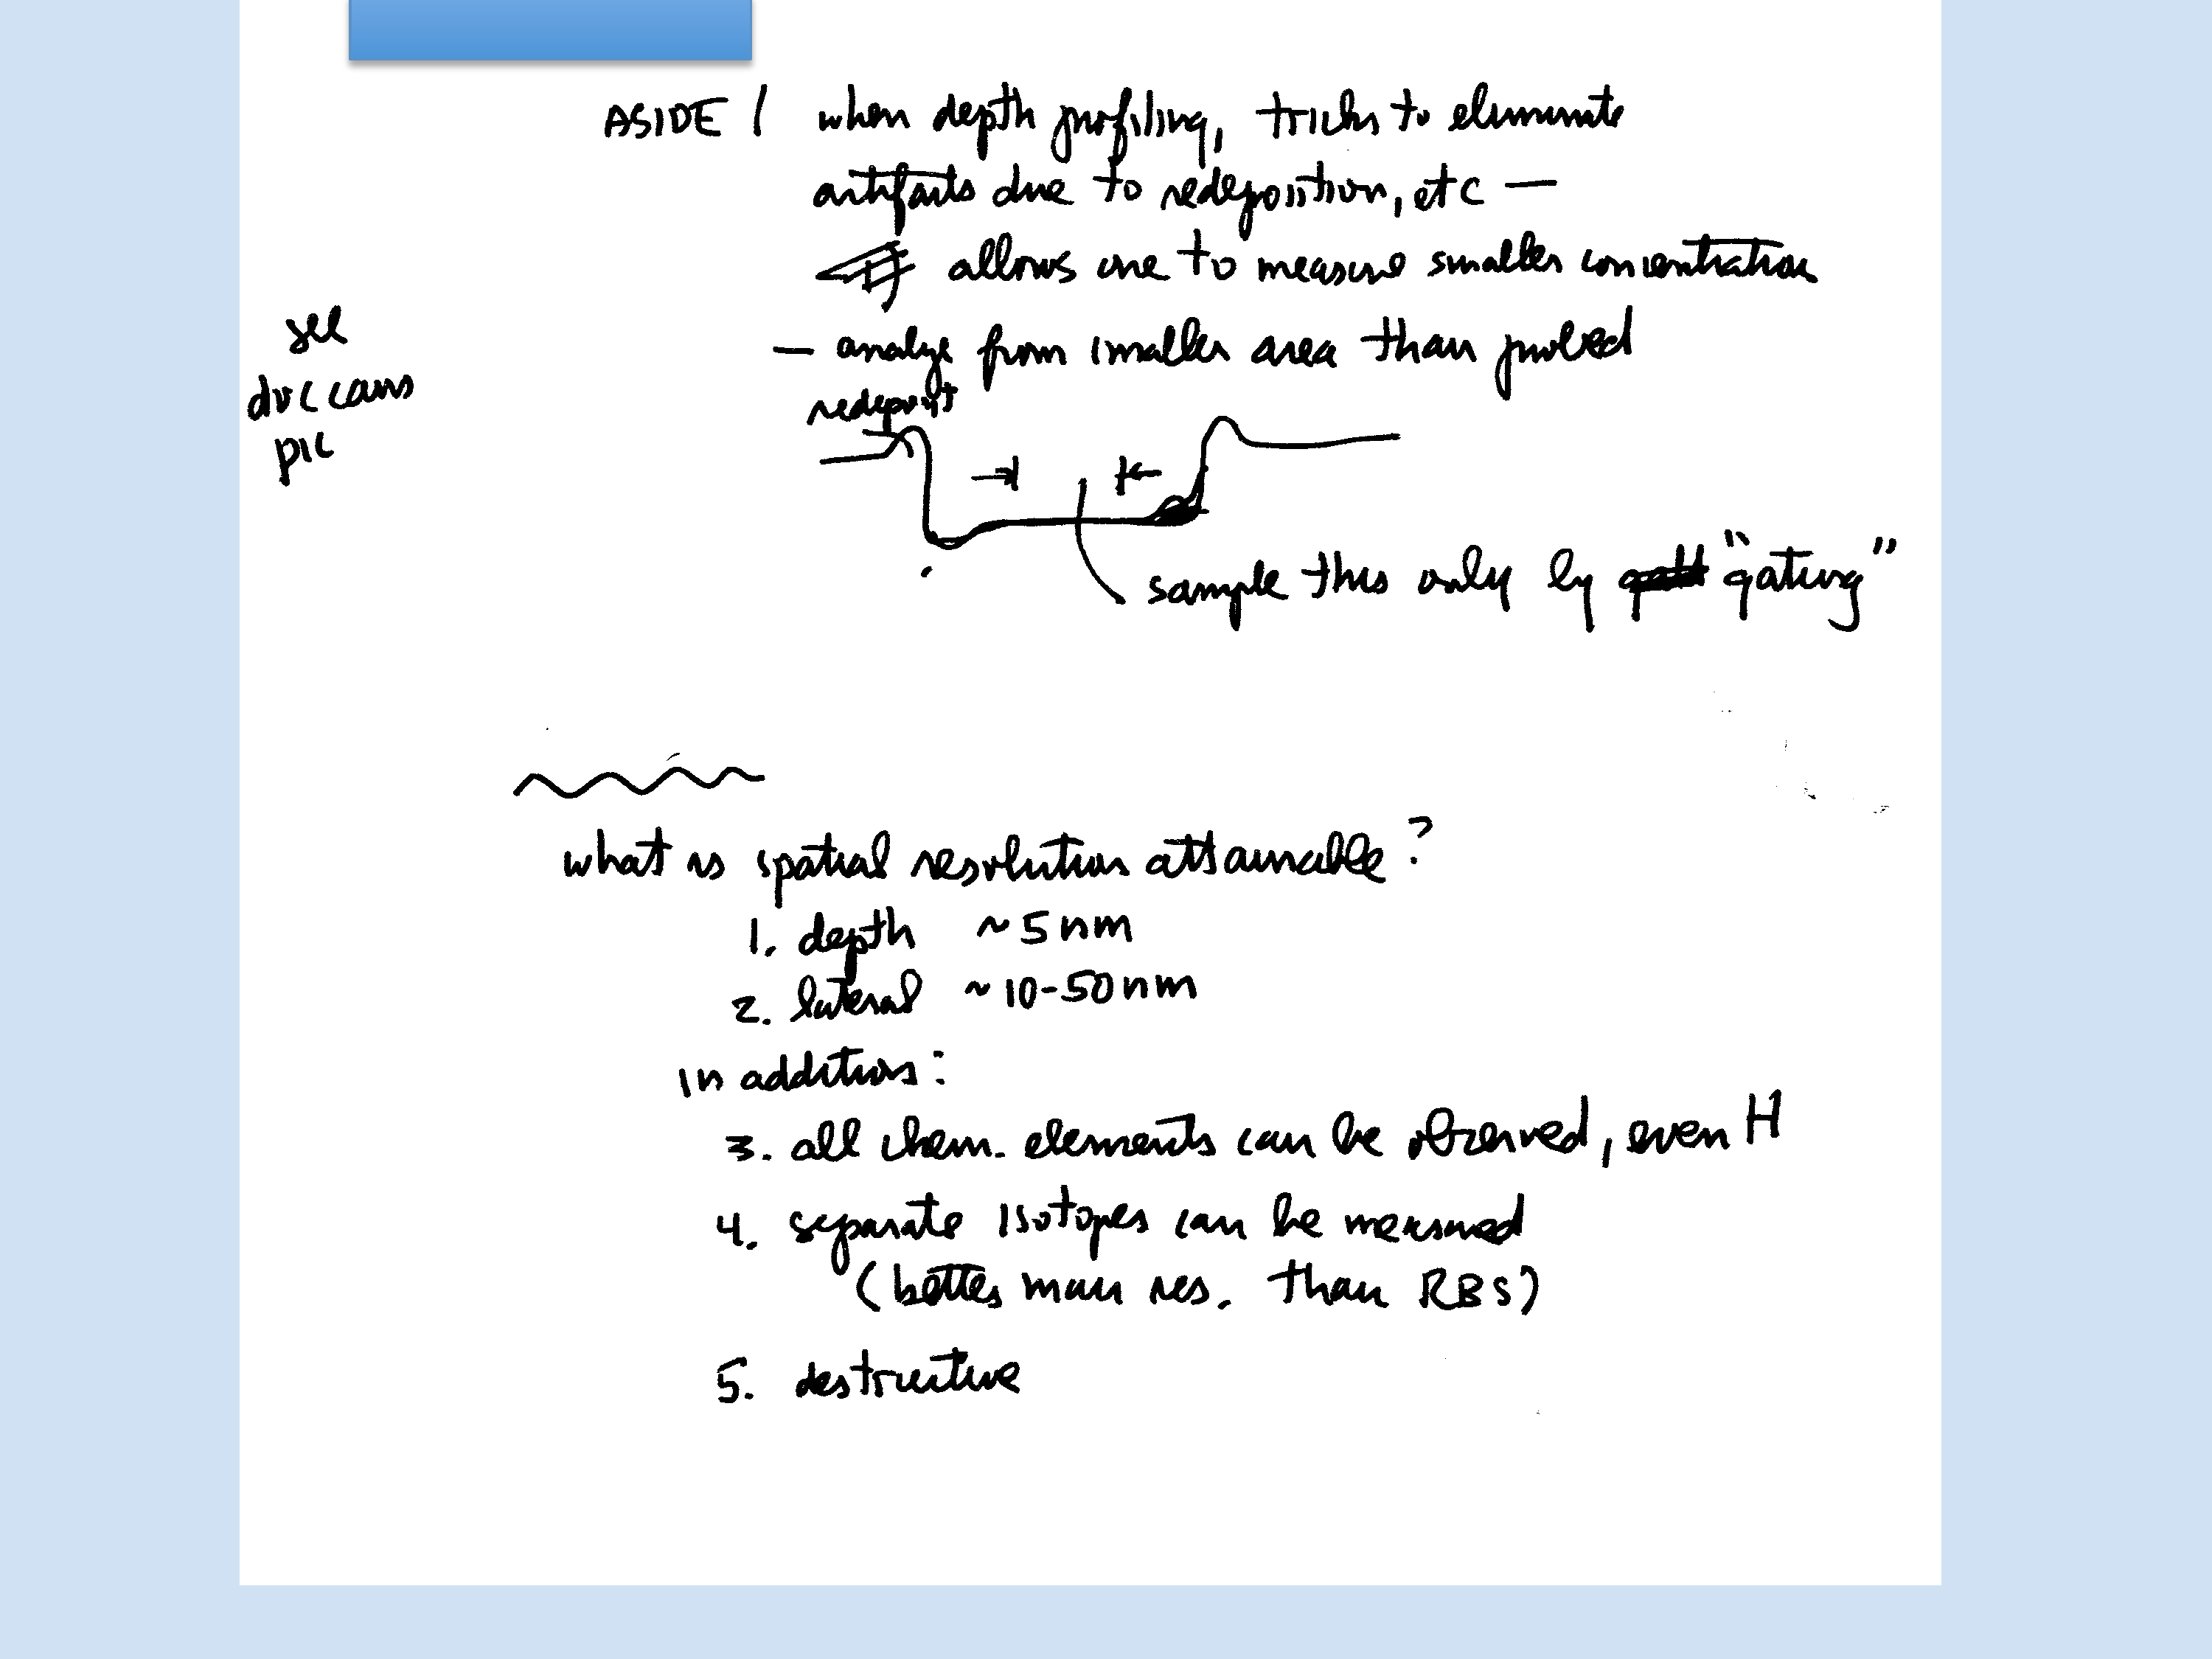 ASIDE / when depth profiling, tricks to eliminate
artifacts due to redeposition, etc —
allows one to measure smaller concentration
— analyze from smaller area than probed
see
pic
redeposit
sample this only by "gating"
what is spatial resolution attainable?
1. depth ~5nm
2. lateral ~10-50nm
in addition:
3. all chem. elements can be observed, even H
4. separate isotopes can be measured
(better mass res. than RBS)
5. destructive